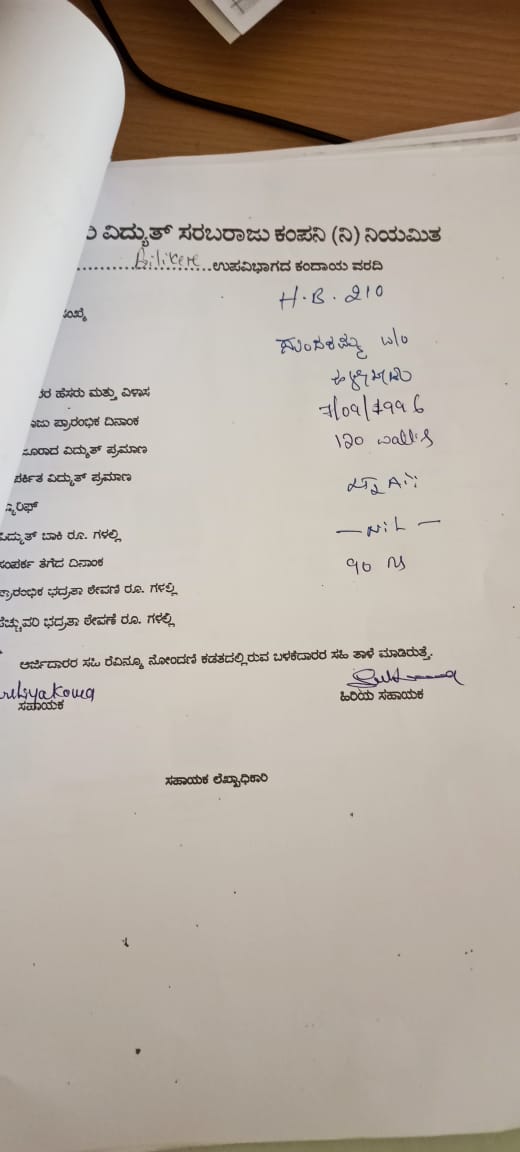 ವಿದ್ಯುತ್ ಸರಬರಾಜು ಕಂಪನಿ (ನಿ) ನಿಯಮಿತ
..........Bilikere......ಉಪವಿಭಾಗದ ಕಂದಾಯ ವರದಿ
H.B.210
ಸಂಖ್ಯೆ
W/o
ಹೆಸರು ಮತ್ತು ವಿಳಾಸ
7/09/1996
ಪ್ರಾರಂಭಿಕ ದಿನಾಂಕ
120 watts
ವಿದ್ಯುತ್ ಪ್ರಮಾಣ
ವಿದ್ಯುತ್ ಪ್ರಮಾಣ
ವಿದ್ಯುತ್ ಬಾಕಿ ರೂ. ಗಳಲ್ಲಿ
— NiL —
ಸಂಪರ್ಕ ತೆಗೆದ ದಿನಾಂಕ
90 rs
ಪ್ರಾರಂಭಿಕ ಭದ್ರತಾ ಠೇವಣಿ ರೂ. ಗಳಲ್ಲಿ
ಹೆಚ್ಚುವರಿ ಭದ್ರತಾ ಠೇವಣಿ ರೂ. ಗಳಲ್ಲಿ
ಅರ್ಜಿದಾರರ ಸಹಿ ರೆವಿನ್ಯೂ ನೋಂದಣಿ ಕಡತದಲ್ಲಿರುವ ಬಳಕೆದಾರರ ಸಹಿ ತಾಳೆ ಮಾಡಿರುತ್ತೆ.
ಸಹಾಯಕ
ಹಿರಿಯ ಸಹಾಯಕ
ಸಹಾಯಕ ಲೆಖ್ಖಾಧಿಕಾರಿ